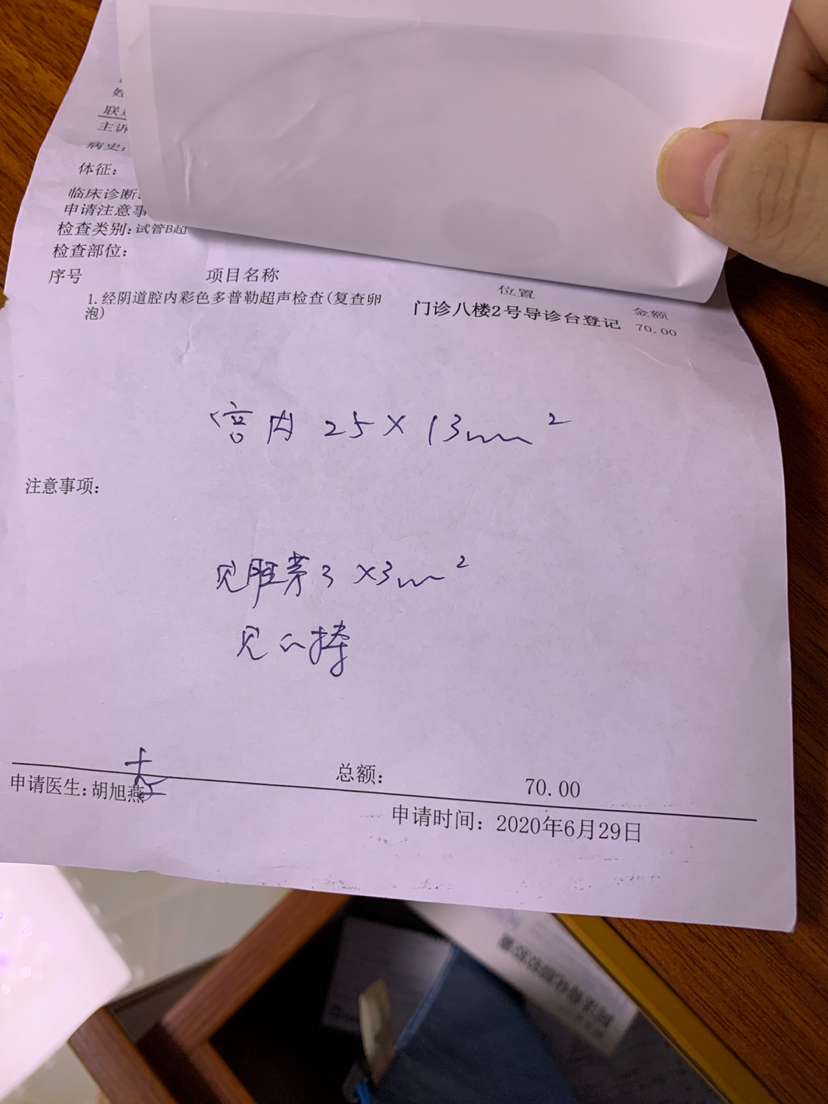 主诉
病史:
体征:
临床诊断:
申请注意事
检查类别:试管B超
检查部位:
序号 项目名称 位置 金额
1.经阴道腔内彩色多普勒超声检查(复查卵泡) 门诊八楼2号导诊台登记 70.00
宫内 25×13mm²
注意事项:
见胚芽3×3mm²
见心搏
总额: 70.00
申请医生:胡旭燕
申请时间: 2020年6月29日